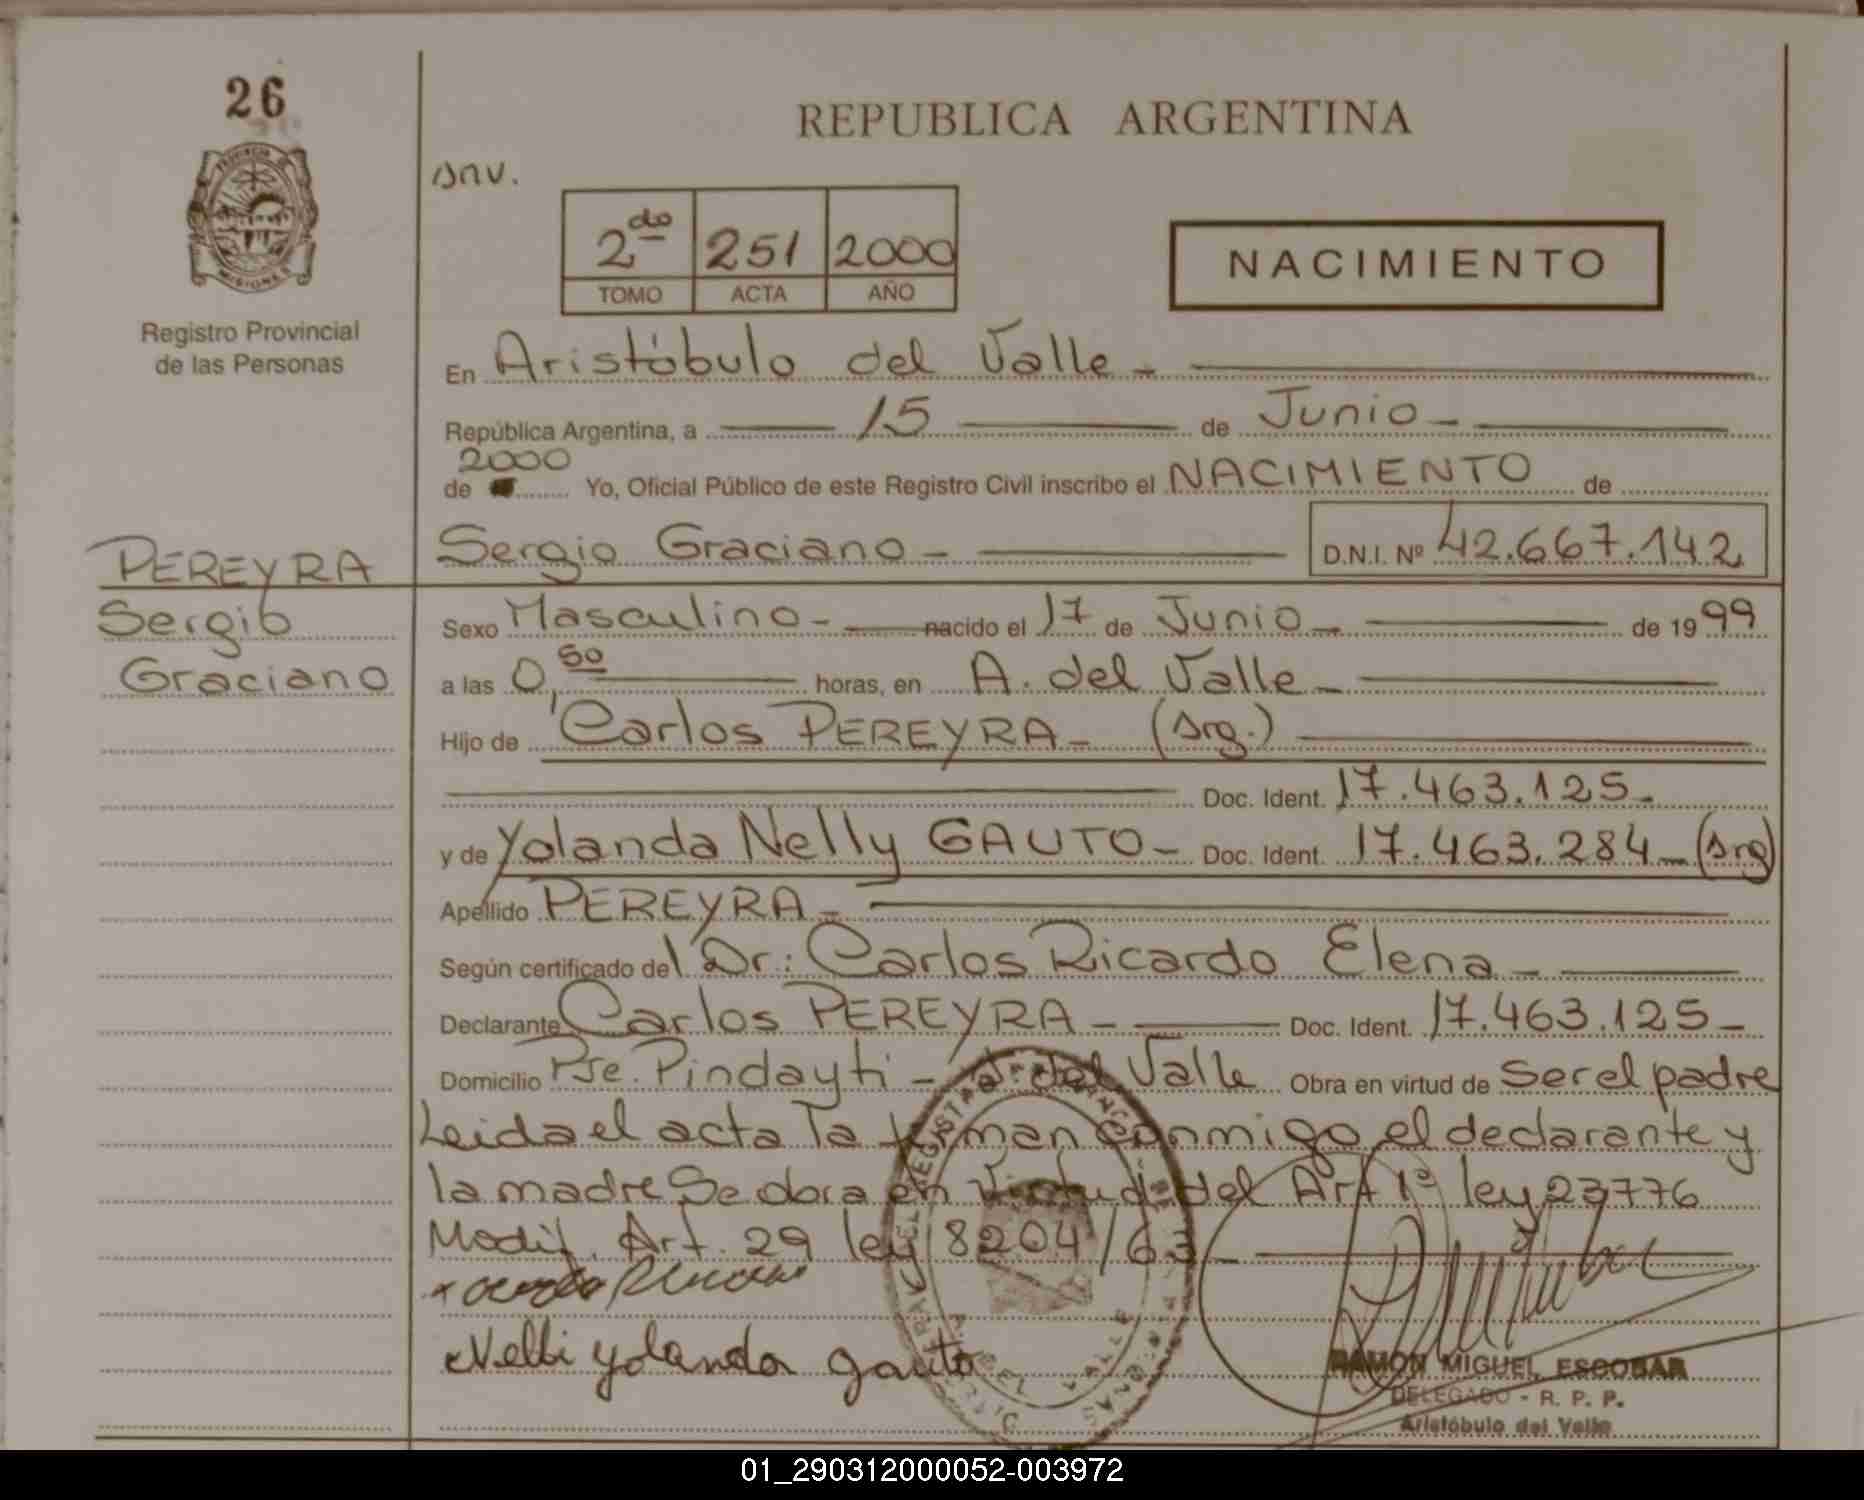 26
REPUBLICA ARGENTINA
snv.
PROVINCIA DE
MISIONES
2do 251 2000
TOMO ACTA AÑO
NACIMIENTO
Registro Provincial
de las Personas
En Aristóbulo del Valle -
República Argentina, a 15 de Junio -
2000
de Yo, Oficial Público de este Registro Civil inscribo el NACIMIENTO de
PEREYRA
Sergio
Graciano
Sergio Graciano - D.N.I. Nº 42.667.142
Sexo Masculino - nacido el 17 de Junio - de 1999
a las 0,50 horas, en A. del Valle -
Hijo de Carlos PEREYRA - (Arg.)
Doc. Ident. 17.463.125 -
y de Yolanda Nelly GAUTO - Doc. Ident. 17.463.284 - (Arg)
Apellido PEREYRA -
Según certificado del Dr: Carlos Ricardo Elena -
Declarante Carlos PEREYRA - Doc. Ident. 17.463.125 -
Domicilio Pje. Pindayti - A. del Valle Obra en virtud de Ser el padre
Leida el acta la firman conmigo el declarante y
la madre Se obra en Virtud del Art 1º ley 23776
Modif. Art. 29 ley 8204/63 -
Nelli yolanda gauto
A. DEL VALLE
RAMON MIGUEL ESCOBAR
DELEGADO - R. P. P.
Aristóbulo del Valle
01_290312000052-003972